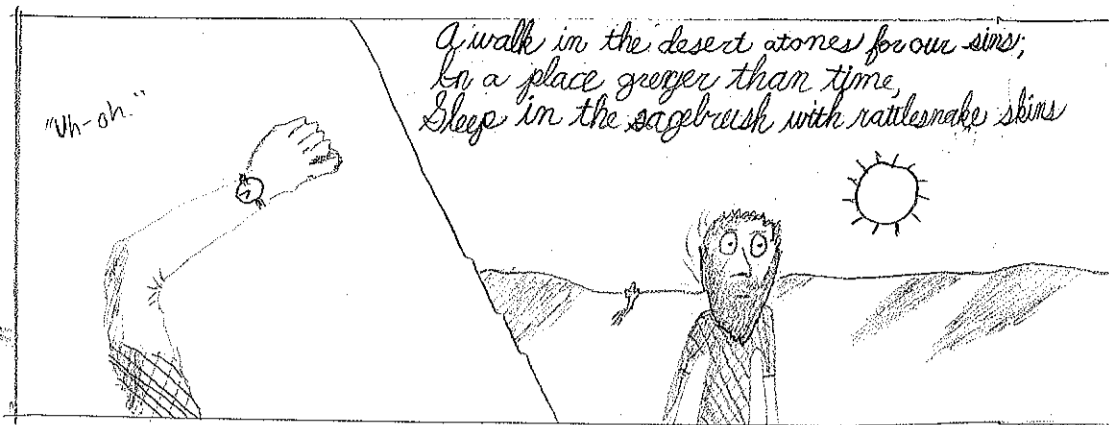 "Uh-oh."
A walk in the desert atones for our sins;
In a place greyer than time,
Sleep in the sagebrush with rattlesnake skins